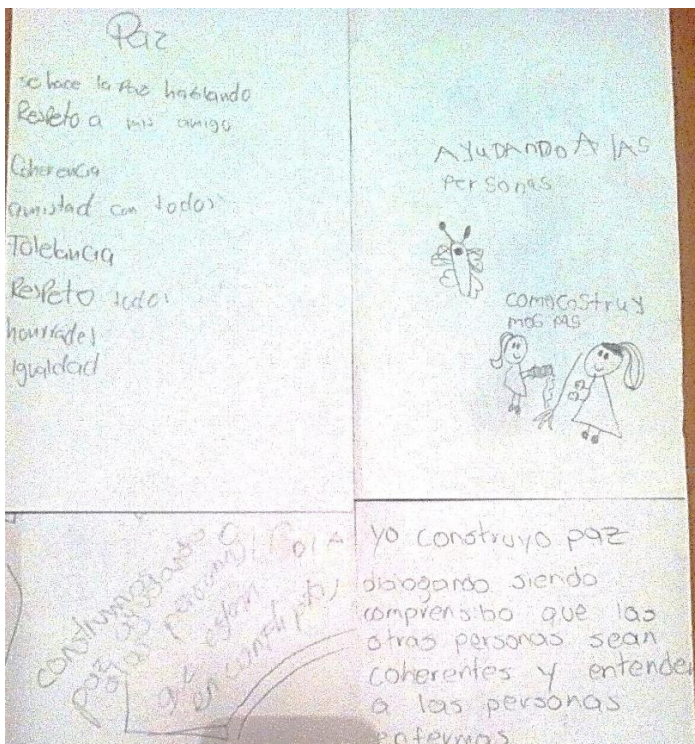 Paz
se hace la Paz hablando
Respeto a mis amigo
Coherencia
amistad con todos
Tolerancia
Respeto todos
honrradez
Igualdad
AYUDANDO A LAS
PerSonas
COMOCOSTruy
mos PAS
construimos
paz ayudando a
otras personas
que estan
en conflictos
yo construyo paz
dialogando siendo
comprensibo que las
otras personas sean
coherentes y entender
a las personas
enfermas